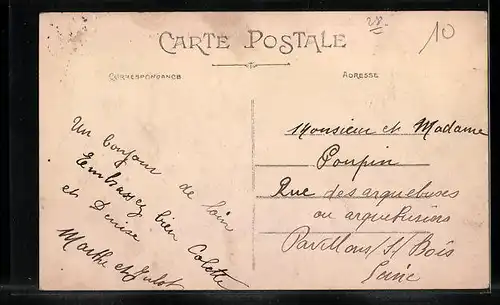 28
10
CARTE POSTALE
CORRESPONDANCE
ADRESSE
Un bonjour de loin
Embrassez bien Colette
et Denise
Marthe et Julot
Monsieur et Madame
Poupin
Rue des arquebuses
ou arquebusins
Pavillons /s/ Bois
Seine